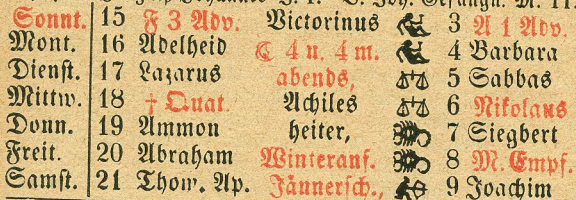 Sonnt. 15 F 3 Adv. Victorinus 3 A 1 Adv.
Mont. 16 Adelheid ☾ 4 u. 4 m. 4 Barbara
Dienst. 17 Lazarus abends, 5 Sabbas
Mittw. 18 † Quat. Achiles 6 Nikolaus
Donn. 19 Ammon heiter, 7 Siegbert
Freit. 20 Abraham Winteranf. 8 M. Empf.
Samst. 21 Thom. Ap. Jännersch., 9 Joachim